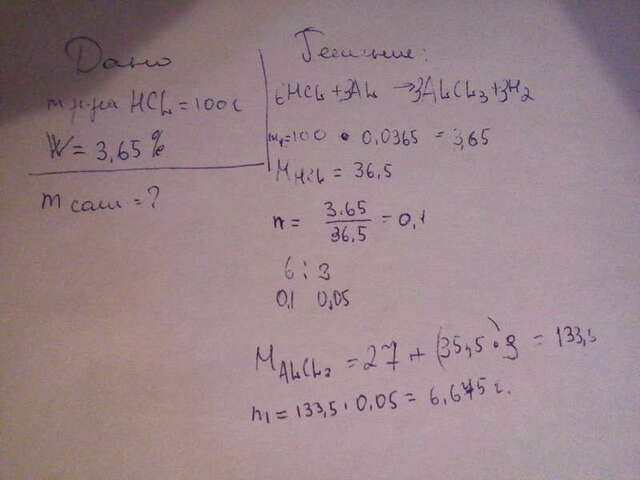 Дано
m р-ра HCl = 100г
W = 3,65 %
m соли = ?
Решение:
6HCl + 2Al → 3AlCl3 + 3H2
m = 100 • 0,0365 = 3,65
M HCl = 36,5
n = 3.65 / 36.5 = 0,1
6 : 3
0,1 0,05
M AlCl3 = 27 + (35,5 • 3) = 133,5
m = 133,5 • 0,05 = 6,675 г.